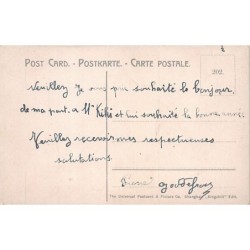 POST CARD. - POSTKARTE. - CARTE POSTALE.
Veuillez je vous prie souhaité le bonjour,
de ma part, a Mr Kiki et lui souhaité la bonne année
Veuillez recevoir mes respectueuses
salutations
Pierre
The Universal Postcard & Picture Co. Shanghai